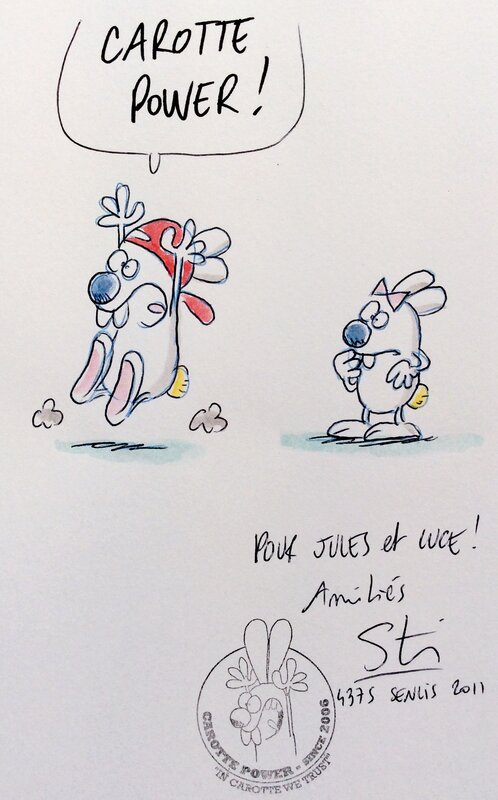 CAROTTE
POWER !
POUR JULES et LUCE !
Amitiés
Sti
SENLIS 2011
CAROTTE POWER - SINCE 2006
"IN CAROTTE WE TRUST"